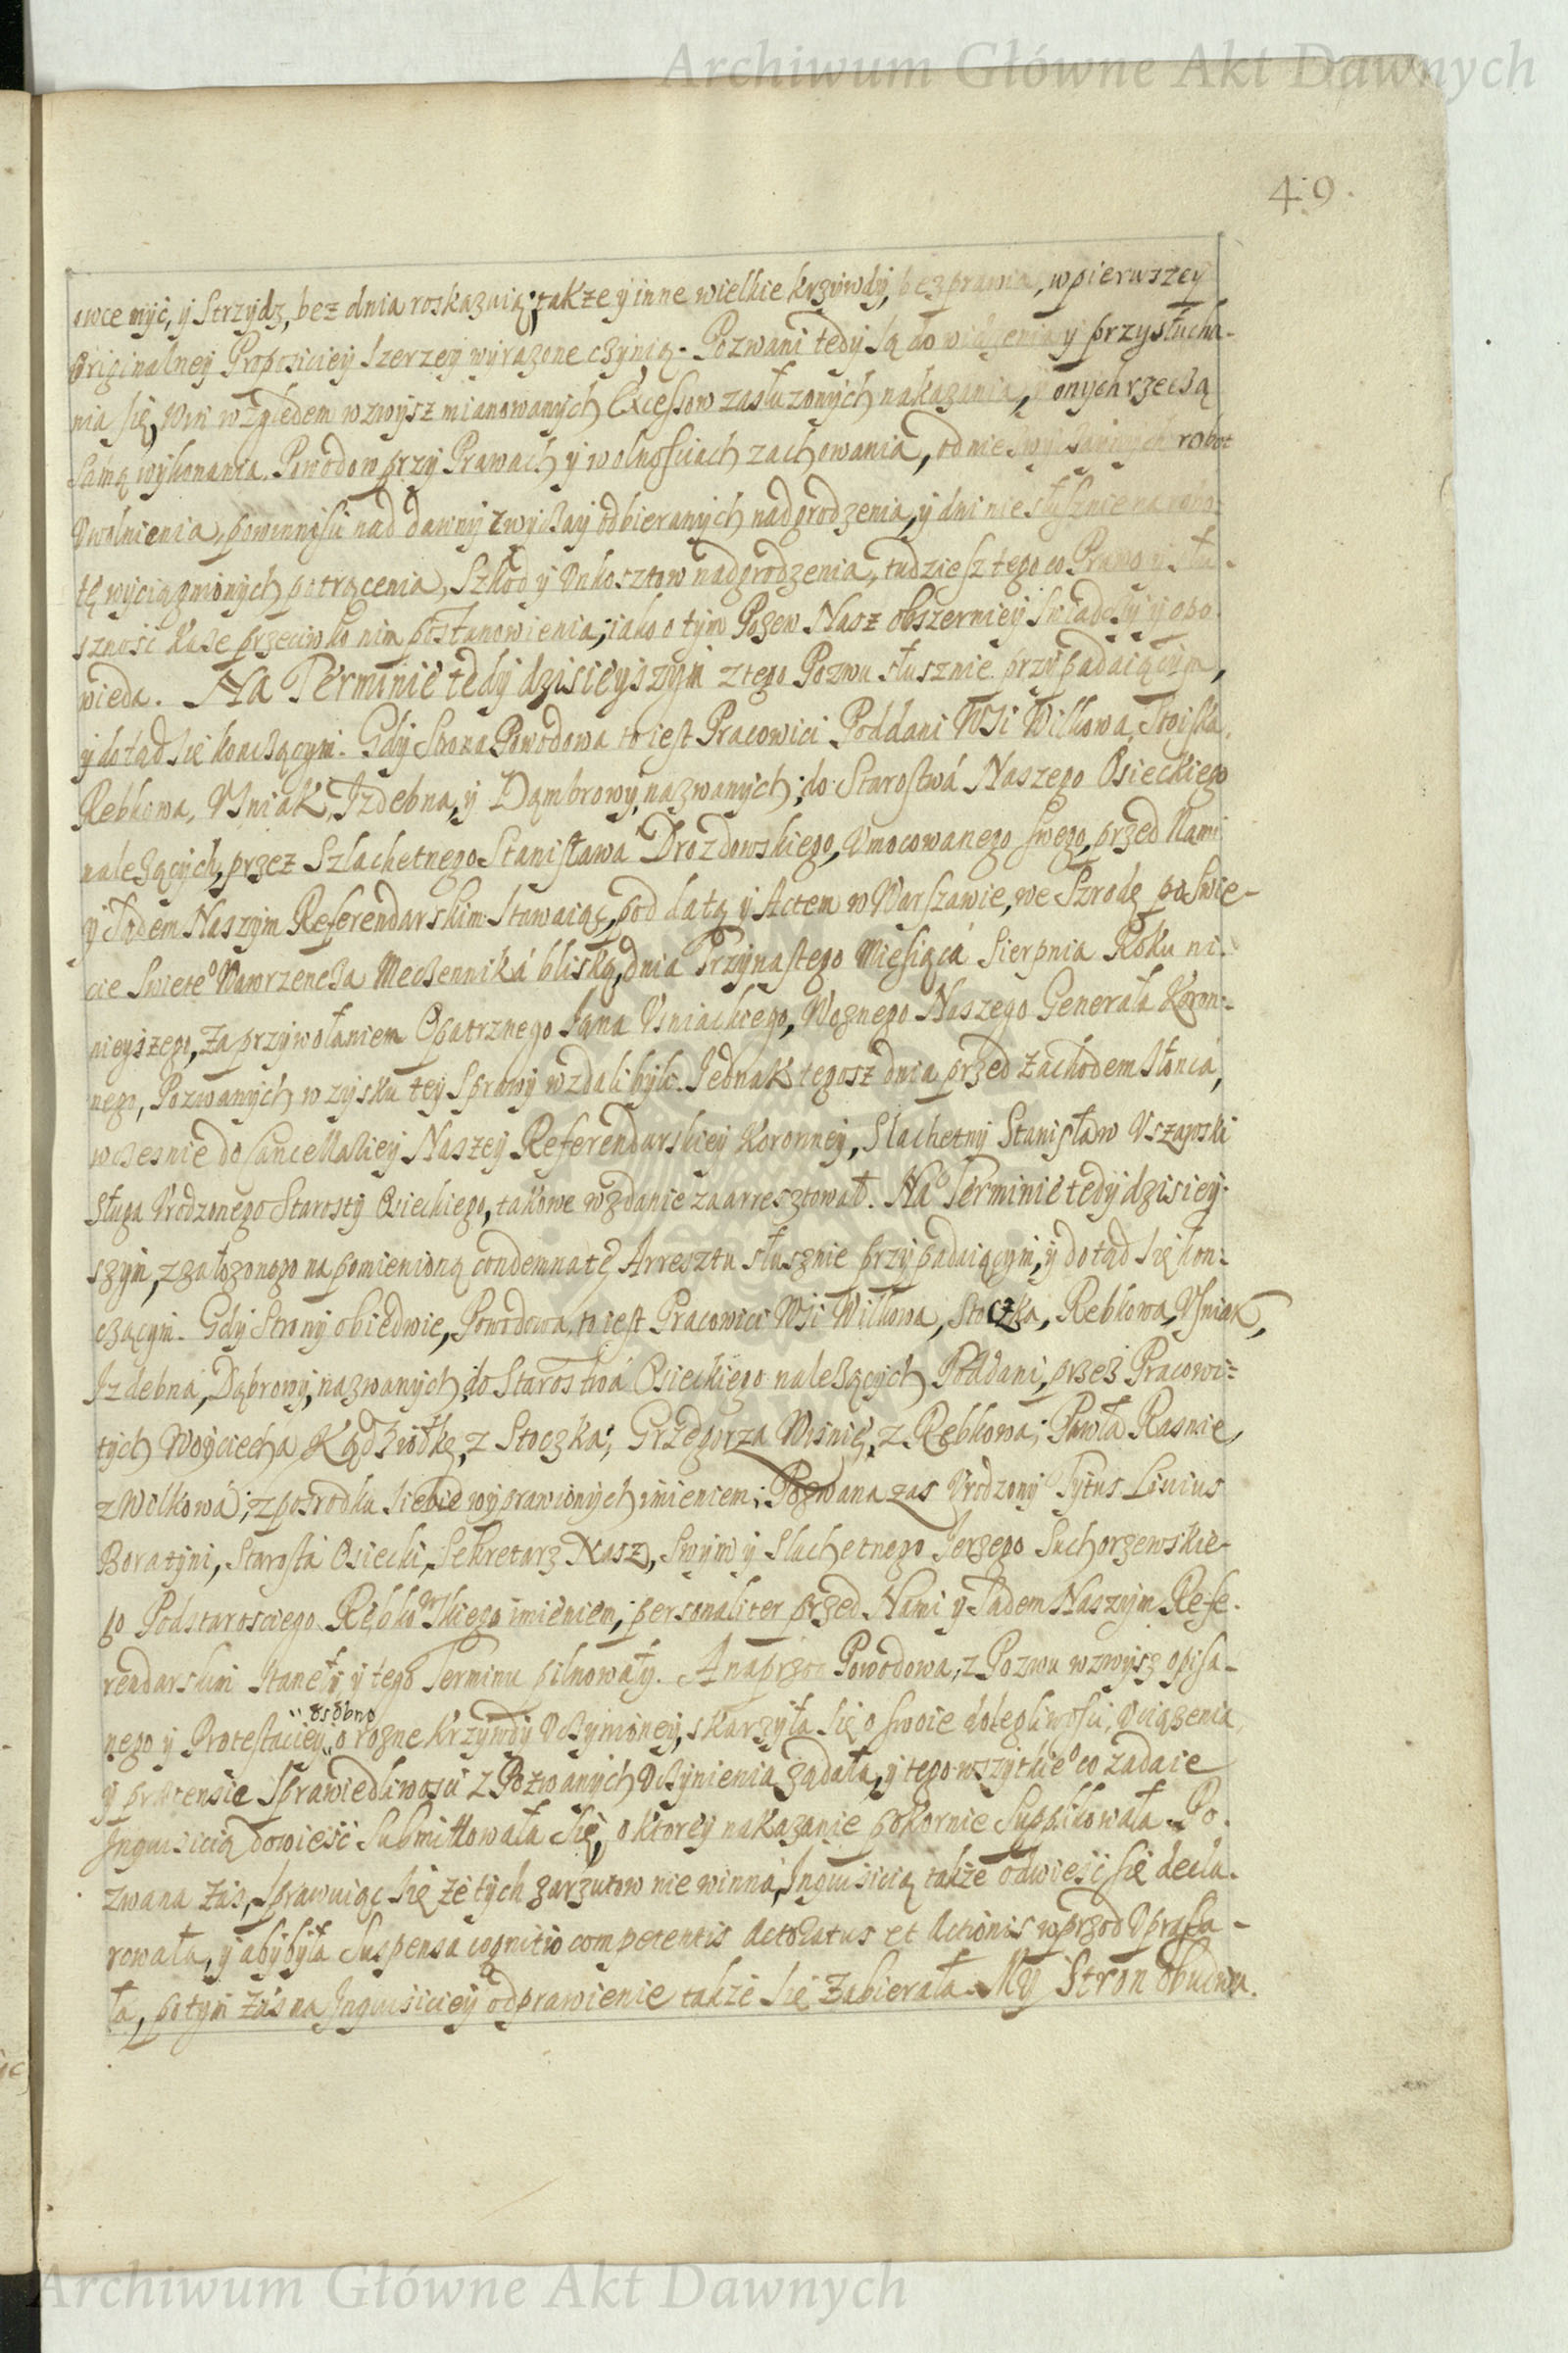 Archiwum Główne Akt Dawnych
49.
owce myć, y Strzydz, bez dnia roskazuią; także y inne wielkie krzywdy, bezprawia, w pierwszey
Originalney Propositiey szerzey wyrazone czynią. Pozwani tedy są do widzenia y przysłucha-
nia się, Win względem wzwysz mianowanych Excessow zasłuzonych nakazania, y onych rzeczą
samą wykonania. Powodow przy Prawach y wolnościach zachowania, od niezwyczaynych robot
Vwolnienia, powinności nad dawny zwyczay odbieranych nadgrodzenia, y dni niesłusznie na robo-
tę wyciągnionych potrącenia, Szkod y Vnkosztow nadgrodzenia, tudziesz tego co Prawo y Słu-
szność każe przeciwko nim postanowienia; iako o tym Pozew Nasz obszerniey świadczy y opo-
wieda. Na Terminie tedy dzisieyszym z tego Pozwu słusznie przypadaiącym,
y dotąd się kończącym. Gdy Strona Powodowa to iest Pracowici Poddani Wsi Wilkowa, Stoczka,
Rebkowa, Vśniak, Izdebna, y Dąmbrowy, nazwanych; do Starostwá Naszego Osieckiego
należących, przez Szlachetnego Stanisława Drozdowskiego, Vmocowanego swego, przed Nami
y Sądem Naszym Referendarskim Stawaiąc, pod datą y Actem w Warszawie, we Szrodę po Świę-
cie Swięte° Wawrzeńca Męczenniká bliską, dnia Trzynastego Miesiąca Sierpnia Roku ni-
nieyszego, za przywołaniem Opatrznego Jana Vśniackiego, Woznego Naszego Generała Koron-
nego, Pozwanych w zysku tey Sprawy wzdali byli. Jednak tegosz dnia przed zachodem słońcá,
wcześnie do Cancellariey Naszey Referendarskiey Koronney, Slachetny Stanisław Vszapski
sługa Vrodzonego Starosty Osieckiego, takowe wzdanie zaarresztował. Na Terminie tedy dzisiey-
szym, z założonego na pomienioną condemnatę Arresztu słusznie przypadaiącym, y dotąd się koń-
czącym. Gdy Strony obiedwie, Powodowa, to iest Pracowici Wsi Wilkowa, Stoczka, Rebkowa, Vśniak,
Izdebná, Dąbrowy, nazwanych, do Starostwá Osieckiego należących Poddani, przez Pracowi-
tych Woyciecha Kądziołkę, z Stoczka; Grzegorza Wiśnię, z Rębkowa; Pawła Rasnie,
z Wilkowá; z pośrodku siebie wyprawionych imieniem; Pozwana zas Vrodzony Tytus Liuius
Boratyni, Starosta Osiecki, Sekretarz Nasz, Swym y Slachetnego Jerzego Suchorzewskie-
go Podstarosciego Rębkowskiego imieniem; personaliter przed Nami y Sądem Naszym Refe-
rendarskim stanęły y tego Terminu pilnowały. A naprzod Powodowa, z Pozwu wzwysz opisa-
osobno
nego y Protestaciey, o rozne krzywdy Vczynioney, skarzyła się o swoie dolegliwości, Vciążenia,
y prætensie Sprawiedliwości z Pozwanych Vczynienia żądała, y tego wszytkie° co zadaie
Inquisicią dowieść Submittowała się, o ktorey nakazanie pokornie Supplikowała. Po-
zwana zás, sprawuiąc się że tych zarzutow nie winná, Inquisicią także odwieść się decla-
rowała, y aby była Suspensa cognitio competentis Actoratus et Actionis wprzod Vprasza-
ła, potym zás na Inquisiciey odprawienie także się zabierała. My Stron obudwu
Archiwum Główne Akt Dawnych